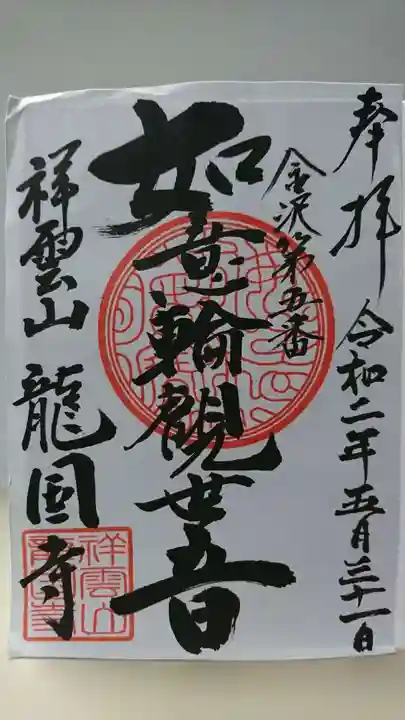 奉拝
令和二年五月三十一日
金沢第五番
如意輪観世音
祥雲山
龍国寺
祥雲山